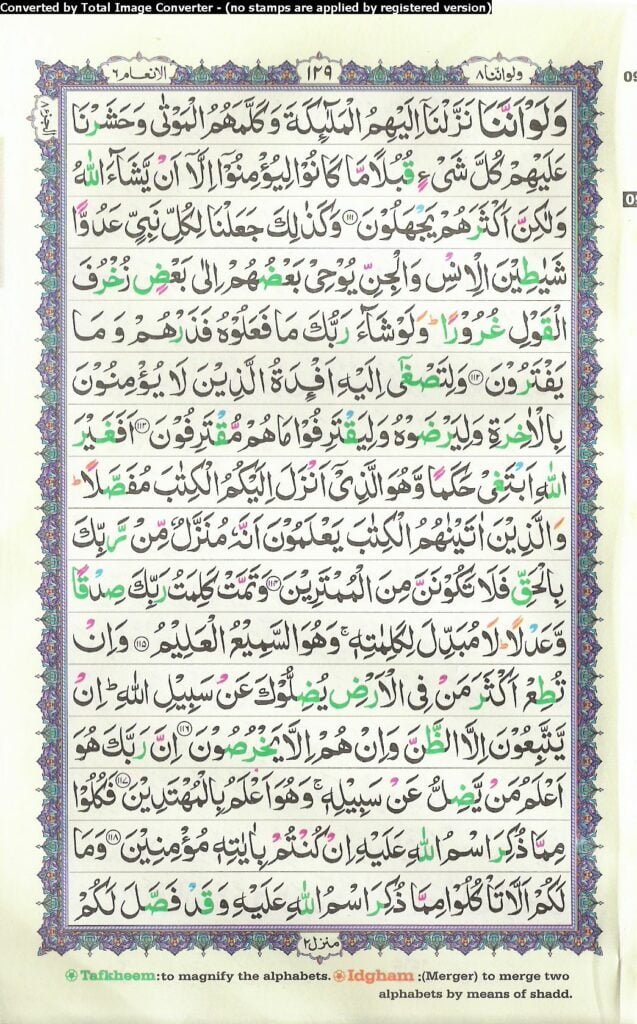 Converted by Total Image Converter - (no stamps are applied by registered version)
ولواننا ٨
١٢٩
الانعام ٦
وَلَوْ اَنَّنَا نَزَّلْنَاۤ اِلَیْهِمُ الْمَلٰٓىِٕكَةَ وَكَلَّمَهُمُ الْمَوْتٰی وَحَشَرْنَا
عَلَیْهِمْ كُلَّ شَیْءٍ قُبُلًا مَّا كَانُوْا لِیُؤْمِنُوْۤا اِلَّاۤ اَنْ یَّشَآءَ اللّٰهُ
وَلٰكِنَّ اَكْثَرَهُمْ یَجْهَلُوْنَ ﴿١١١﴾ وَكَذٰلِكَ جَعَلْنَا لِكُلِّ نَبِیٍّ عَدُوًّا
شَیٰطِیْنَ الْاِنْسِ وَالْجِنِّ یُوْحِیْ بَعْضُهُمْ اِلٰی بَعْضٍ زُخْرُفَ
الْقَوْلِ غُرُوْرًا ؕ وَلَوْ شَآءَ رَبُّكَ مَا فَعَلُوْهُ فَذَرْهُمْ وَمَا
یَفْتَرُوْنَ ﴿١١٢﴾ وَلِتَصْغٰۤی اِلَیْهِ اَفْـِٕدَةُ الَّذِیْنَ لَا یُؤْمِنُوْنَ
بِالْاٰخِرَةِ وَلِیَرْضَوْهُ وَلِیَقْتَرِفُوْا مَا هُمْ مُّقْتَرِفُوْنَ ﴿١١٣﴾ اَفَغَیْرَ
اللّٰهِ اَبْتَغِیْ حَكَمًا وَّهُوَ الَّذِیْۤ اَنْزَلَ اِلَیْكُمُ الْكِتٰبَ مُفَصَّلًا ؕ
وَالَّذِیْنَ اٰتَیْنٰهُمُ الْكِتٰبَ یَعْلَمُوْنَ اَنَّهٗ مُنَزَّلٌ مِّنْ رَّبِّكَ
بِالْحَقِّ فَلَا تَكُوْنَنَّ مِنَ الْمُمْتَرِیْنَ ﴿١١٤﴾ وَتَمَّتْ كَلِمَتُ رَبِّكَ صِدْقًا
وَّعَدْلًا ؕ لَا مُبَدِّلَ لِكَلِمٰتِهٖ ۚ وَهُوَ السَّمِیْعُ الْعَلِیْمُ ﴿١١٥﴾ وَاِنْ
تُطِعْ اَكْثَرَ مَنْ فِی الْاَرْضِ یُضِلُّوْكَ عَنْ سَبِیْلِ اللّٰهِ ؕ اِنْ
یَّتَّبِعُوْنَ اِلَّا الظَّنَّ وَاِنْ هُمْ اِلَّا یَخْرُصُوْنَ ﴿١١٦﴾ اِنَّ رَبَّكَ هُوَ
اَعْلَمُ مَنْ یَّضِلُّ عَنْ سَبِیْلِهٖ ۚ وَهُوَ اَعْلَمُ بِالْمُهْتَدِیْنَ ﴿١١٧﴾ فَكُلُوْا
مِمَّا ذُكِرَ اسْمُ اللّٰهِ عَلَیْهِ اِنْ كُنْتُمْ بِاٰیٰتِهٖ مُؤْمِنِیْنَ ﴿١١٨﴾ وَمَا
لَكُمْ اَلَّا تَاْكُلُوْا مِمَّا ذُكِرَ اسْمُ اللّٰهِ عَلَیْهِ وَقَدْ فَصَّلَ لَكُمْ
منزل ٢
Tafkheem:to magnify the alphabets. Idgham :(Merger) to merge two
alphabets by means of shadd.